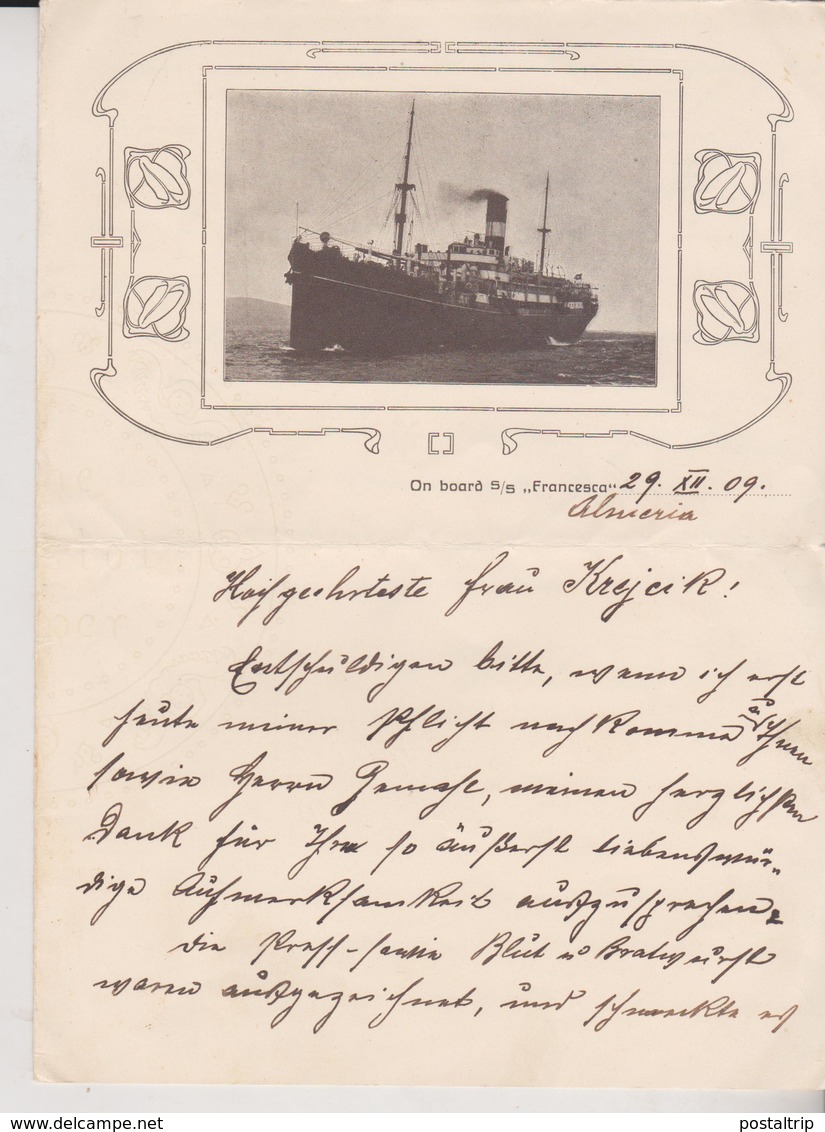 On board S/S „Francesca“ 29. XII. 09.
Almeria
Hochgeehrteste Frau Krejcik!
Entschuldigen bitte, wenn ich erst
heute meiner Pflicht nachkomme u. Ihnen
sowie Herrn Gemahl, meinen herzlichsten
Dank für Ihre so äußerst liebenswür-
dige Aufmerksamkeit auszusprechen.
die Press- sowie Blut u Bratwurst
waren ausgezeichnet, und schmeckte es
www.delcampe.net
postaltrip